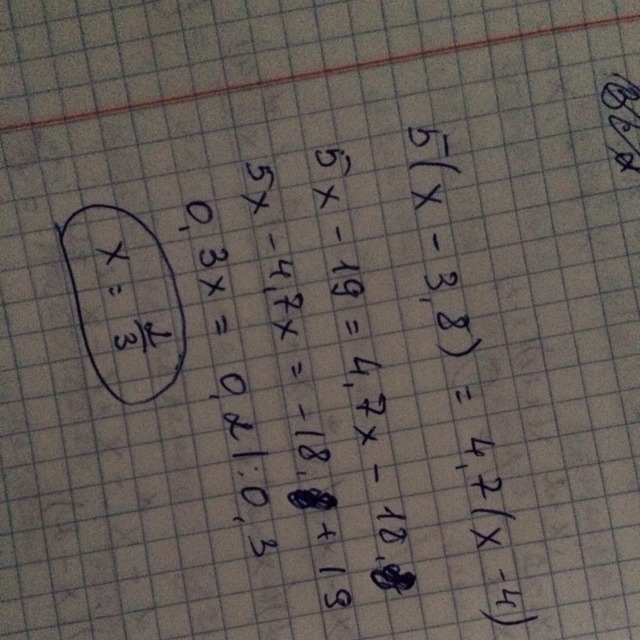 5(x - 3,8) = 4,7(x - 4)
5x - 19 = 4,7x - 18,8
5x - 4,7x = -18,8 + 19
0,3x = 0,2 | : 0,3
x = 2/3